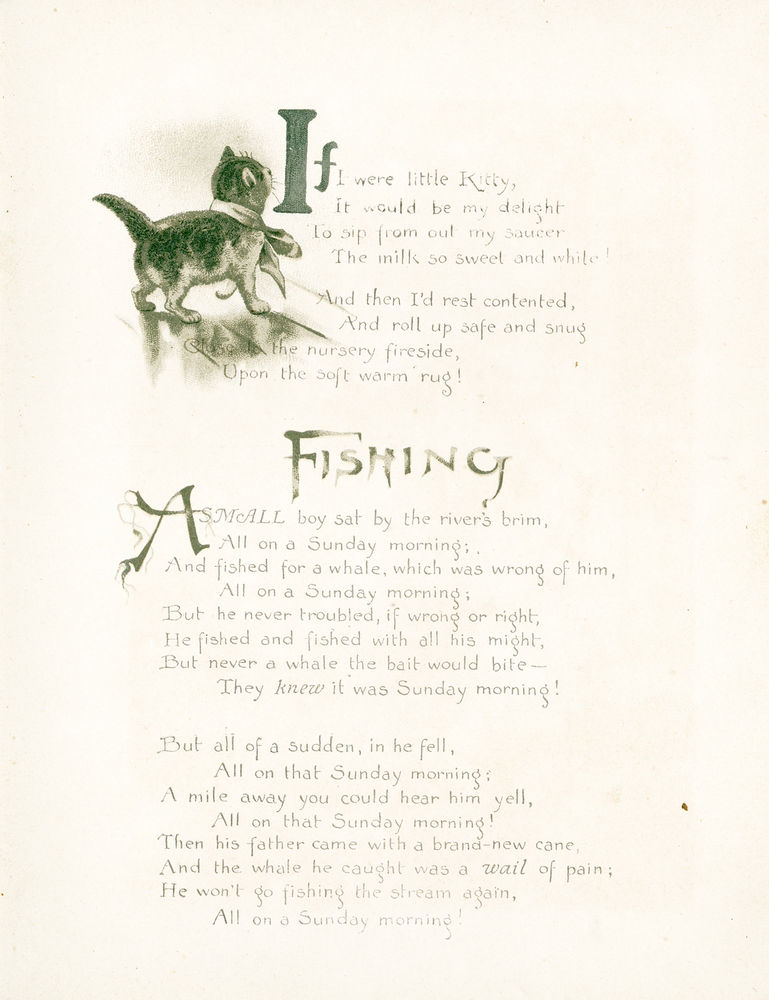 If I were little Kitty,
It would be my delight
To sip from out my saucer
The milk so sweet and white!
And then I'd rest contented,
And roll up safe and snug
Close to the nursery fireside,
Upon the soft warm rug!
FISHING
A SMALL boy sat by the river's brim,
All on a Sunday morning;
And fished for a whale, which was wrong of him,
All on a Sunday morning;
But he never troubled, if wrong or right,
He fished and fished with all his might,
But never a whale the bait would bite—
They knew it was Sunday morning!
But all of a sudden, in he fell,
All on that Sunday morning;
A mile away you could hear him yell,
All on that Sunday morning!
Then his father came with a brand-new cane,
And the whale he caught was a wail of pain;
He won't go fishing the stream again,
All on a Sunday morning!